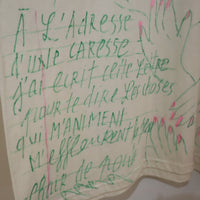 À L'ADRESSE
D'UNE CARESSE
J'ai écrit cette lettre
pour te dire les choses
qui M'ANIMENT
M'effleurent